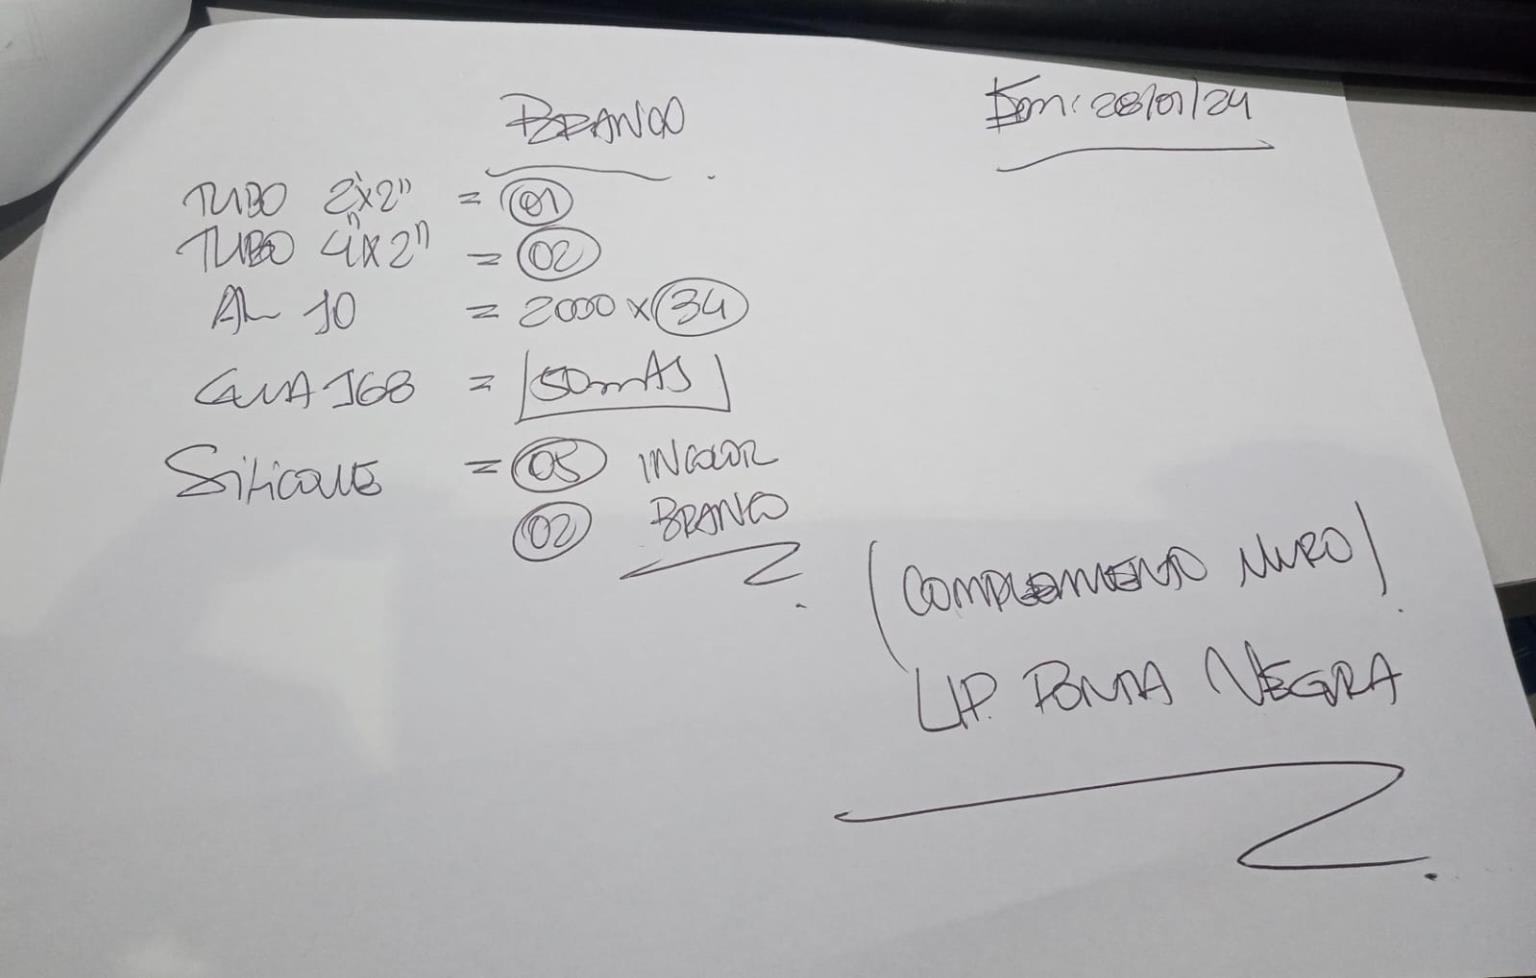 BRANCO
Em: 28/01/24
TUBO 2"x2" = 01
TUBO 4"x2" = 02
AL 10 = 2000 x 34
GUA 168 = 50mts
Silicone = 05 INCOLOR
02 BRANCO
(COMPLEMENTO MURO)
LIP. PONTA NEGRA